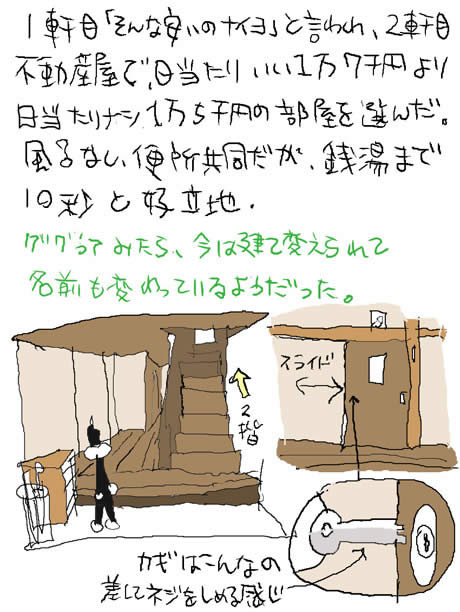 1軒目「そんな安いのナイヨ」と言われ、2軒目
不動産屋で、日当たりいい1万7千円より
日当たりナシ1万5千円の部屋を選んだ。
風呂なし、便所共同だが、銭湯まで
10秒と好立地.
ググってみたら、今は建て変えられて
名前も変わっているようだった。
スライド
2階
カギはこんなの
差してネジをしめる感じ